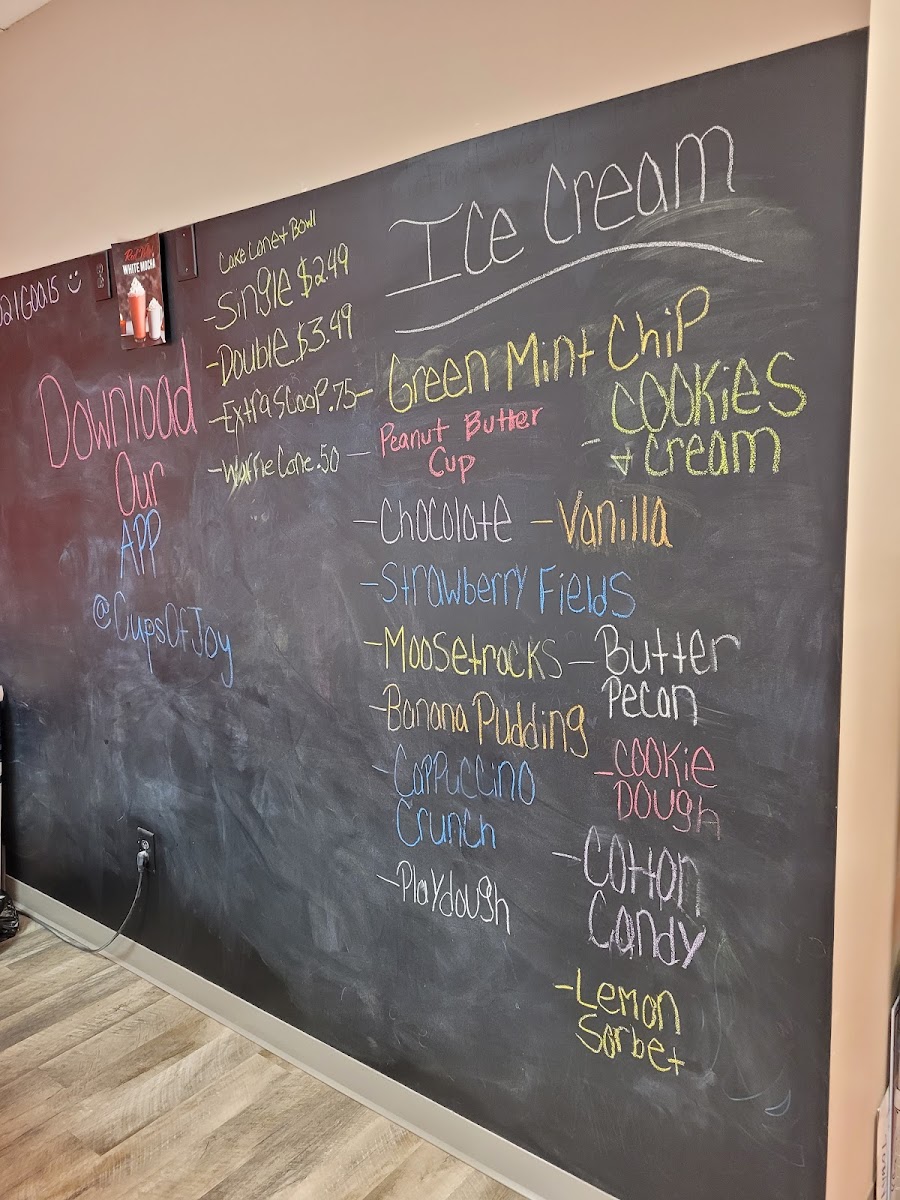 Ice Cream
Cake Cone + Bowl
-Single $2.49
-Double $3.49
-Extra Scoop .75
-Waffle Cone .50
- Green Mint Chip
- Peanut Butter
Cup
- Cookies
+ Cream
-Chocolate
-Vanilla
-Strawberry Fields
-Moosetracks
-Butter
Pecan
-Banana Pudding
-Cookie
Dough
-Cappuccino
Crunch
-Cotton
Candy
-Playdough
-Lemon
Sorbet
Download
Our
APP
@CupsOfJoy
WHITE MOCHA